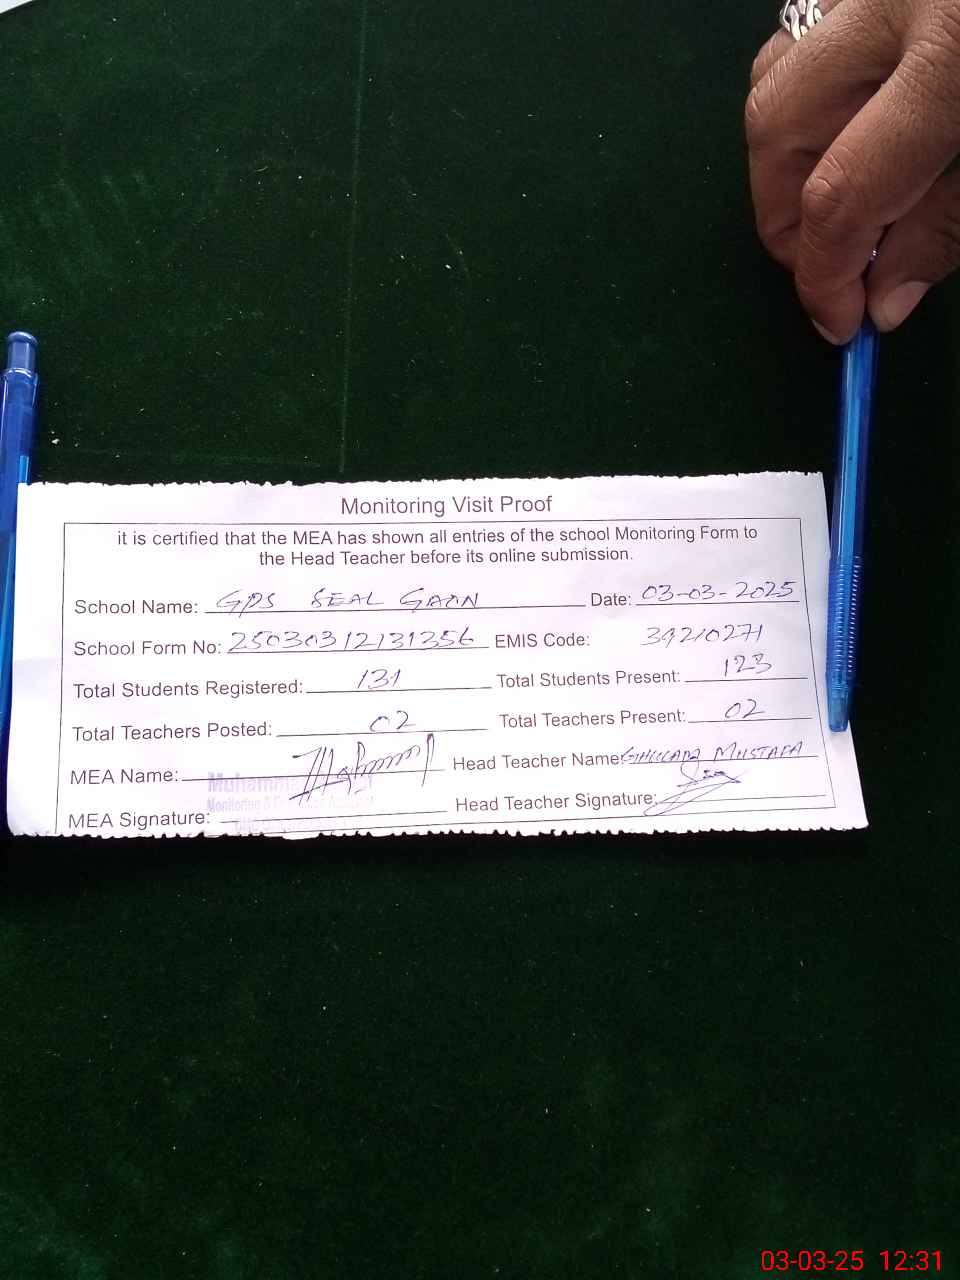 Monitoring Visit Proof
it is certified that the MEA has shown all entries of the school Monitoring Form to
the Head Teacher before its online submission.
School Name: GPS SEAL GAON Date: 03-03-2025
School Form No: 25030312131356 EMIS Code: 39210271
Total Students Registered: 131 Total Students Present: 123
Total Teachers Posted: 02 Total Teachers Present: 02
MEA Name: Head Teacher Name: GHULAM MUSTAFA
Muhammad
Monitoring &
MEA Signature: Head Teacher Signature:
03-03-25 12:31